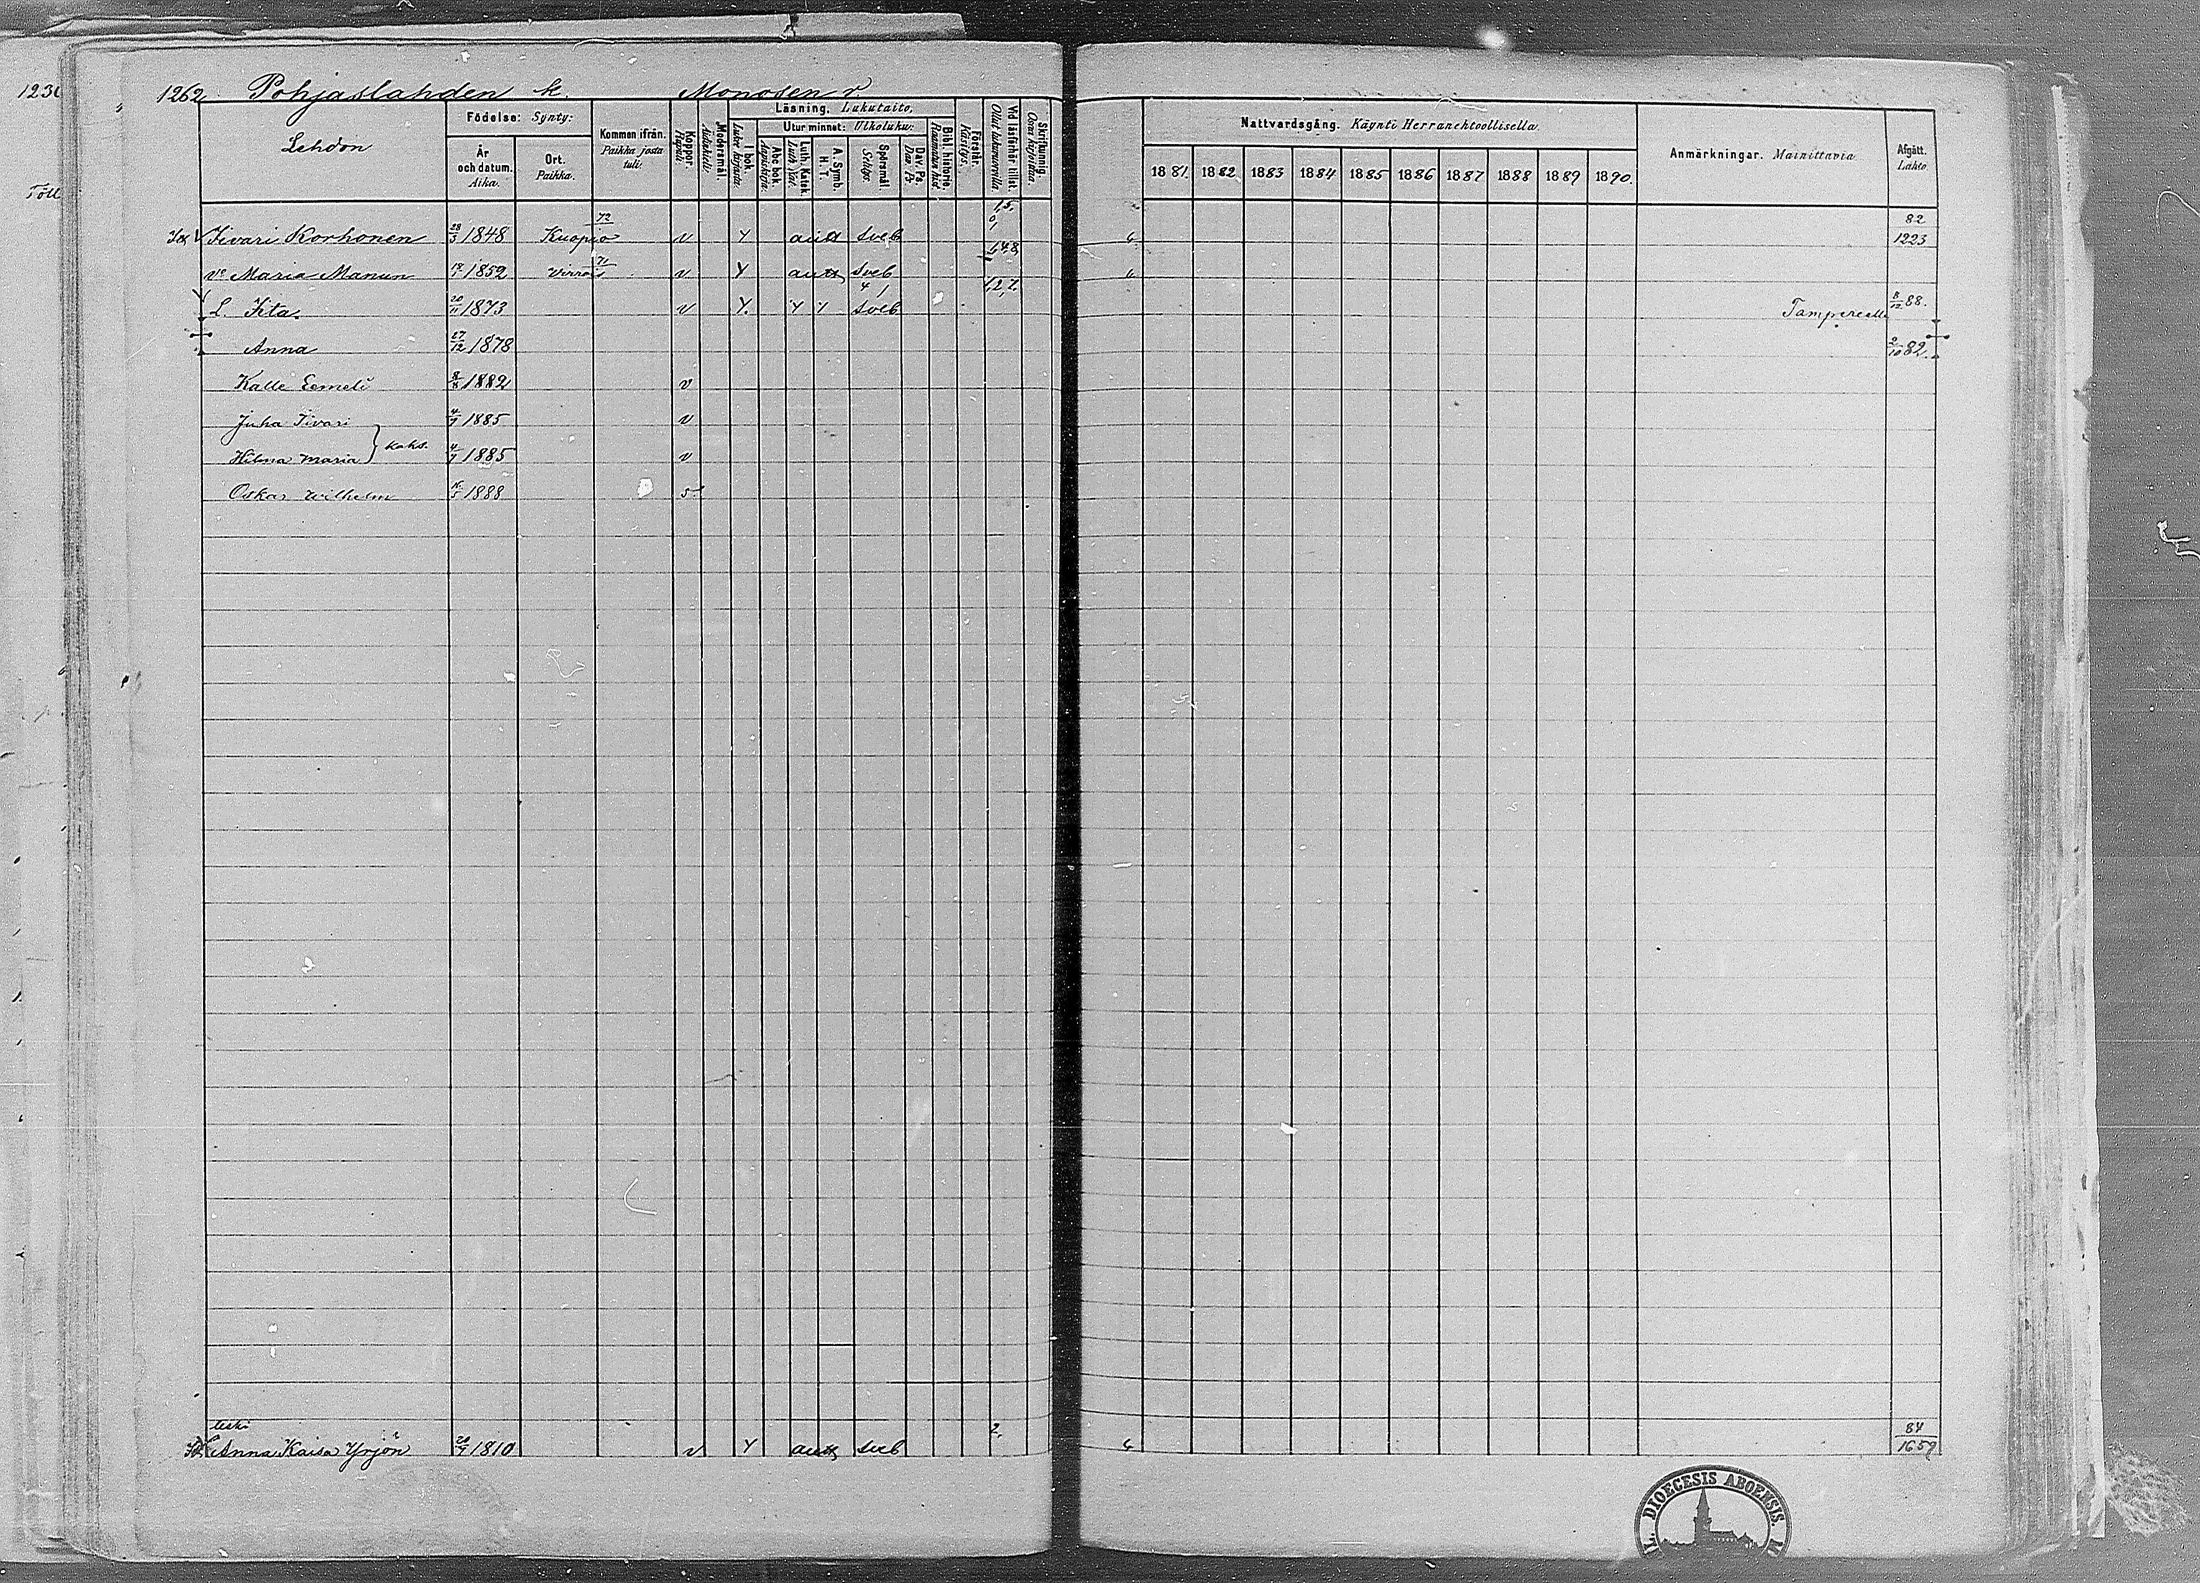 1262 Pohjaslahden k. Monosen r.
Lehdon
Födelse: Synty:
År och datum. Aika.
Ort. Paikka.
Kommen ifrån. Paikka josta tuli:
Koppor. Rupuli
Modersmål. Äidinkieli.
Läsning. Lukutaito.
I bok. Lukee kirjasta.
Utur minnet: Ulkoluku:
Abc bok. Aapiskirja.
Luth. Katek. Luth. Kat.
A. Symb. H. T.
Spörsmål. Selitys.
Dav. Ps. Dav. Ps.
Bibl. historie. Raamatun hist.
Förstår. Käsitys.
Vid läsförhör hillst. Ollut lukuvuorolla
Skrifkunnig. Osaa kirjoittaa.
Nattvardsgång. Käynti Herranehtoollisella.
1881. 1882 1883 1884 1885 1886 1887 1888 1889 1890.
Anmärkningar. Mainittavia
Afgått. Lähtö
Iivari Korhonen 28/3 1848 Kuopio 72 v Y sveb 82 1223
vo Maria Manun 1852 Virrois 71 v Y sveb
L. Iita. 20/11 1873 v Y. Y sveb Tampereelle 8/12 88.
Anna 27/12 1878 2/10 82.
Kalle Eemeli 8/8 1882 v
Juha Iivari 4/7 1885 v
Hilma Maria } kaks. 4/7 1885 v
Oskar Wilhelm 1888 5.
leski
Anna Kaisa Yrjön 1810 v Y sveb 2, 84 1659
DIOECESIS ABOENSIS.
1230